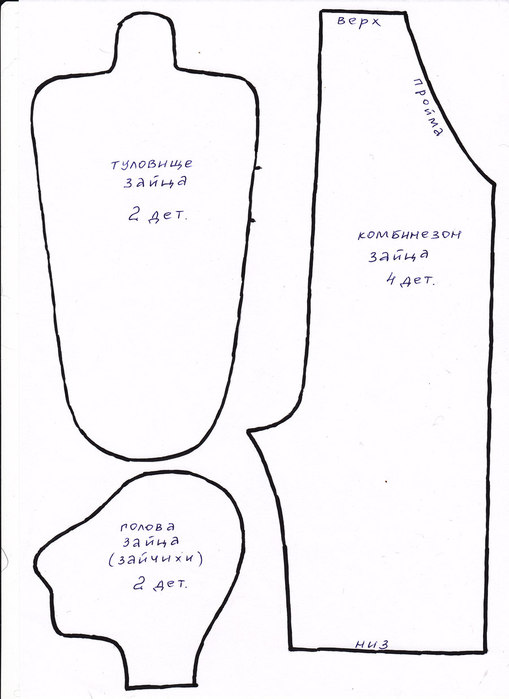 туловище
зайца
2 дет.
верх
пройма
комбинезон
зайца
4 дет.
низ
голова
зайца
(зайчихи)
2 дет.